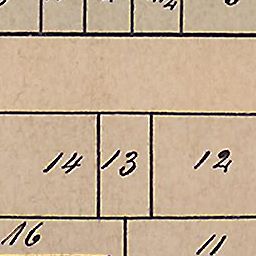 14 13 12
16 11